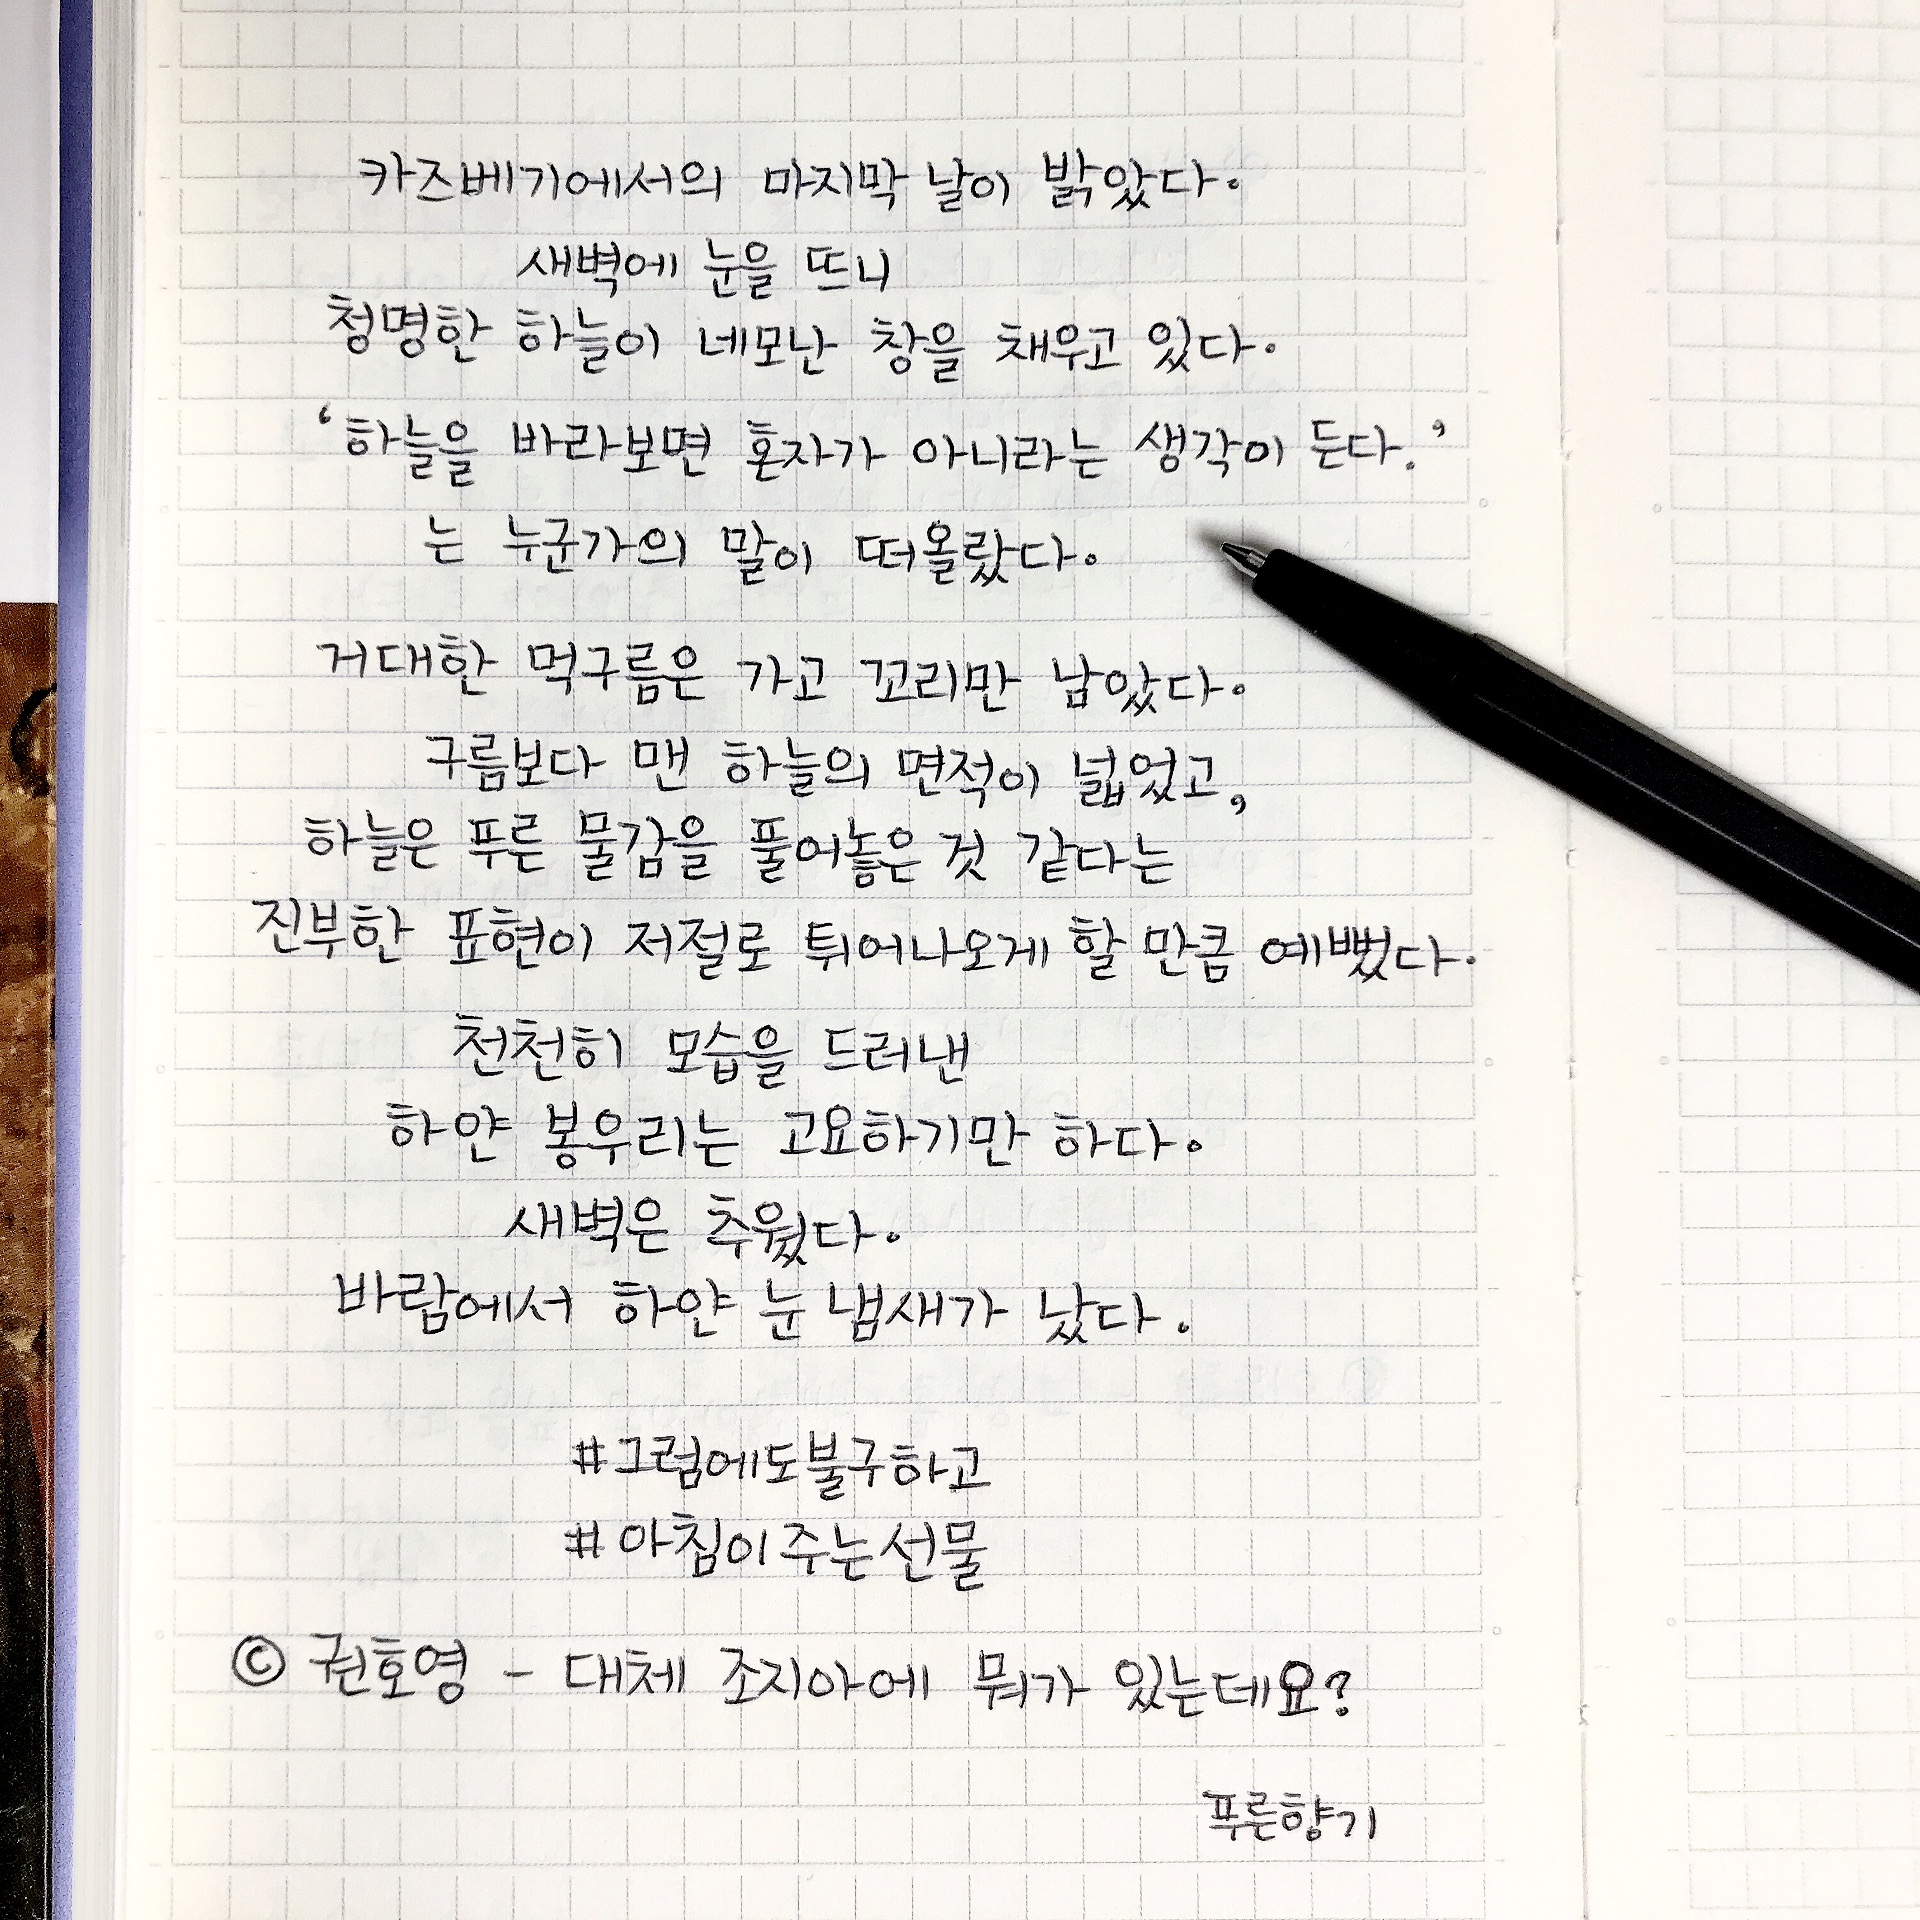 카즈베기에서의 마지막 날이 밝았다.
새벽에 눈을 뜨니
청명한 하늘이 네모난 창을 채우고 있다.
‘하늘을 바라보면 혼자가 아니라는 생각이 든다.’
는 누군가의 말이 떠올랐다.
거대한 먹구름은 가고 꼬리만 남았다.
구름보다 맨 하늘의 면적이 넓었고,
하늘은 푸른 물감을 풀어놓은 것 같다는
진부한 표현이 저절로 튀어나오게 할 만큼 예뻤다.
천천히 모습을 드러낸
하얀 봉우리는 고요하기만 하다.
새벽은 추웠다.
바람에서 하얀 눈 냄새가 났다.
#그럼에도불구하고
#아침이주는선물
© 권호영 - 대체 조지아에 뭐가 있는데요?
푸른향기